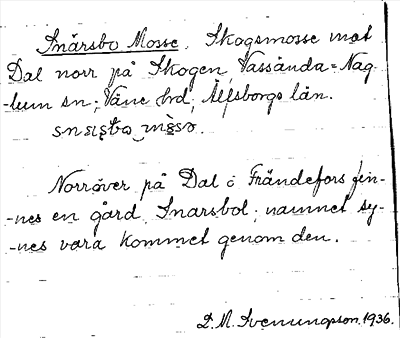 Snärsbo Mosse. Skogsmosse mot
Dal norr på Skogen, Vassända=Nag-
-lum sn; Väne hrd, Älfsborgs län.
Norröver på Dal i Frändefors fin-
-nes en gård Snarsbol; namnet sy-
-nes vara kommet genom den.
D. M. Svenungsson. 1936.